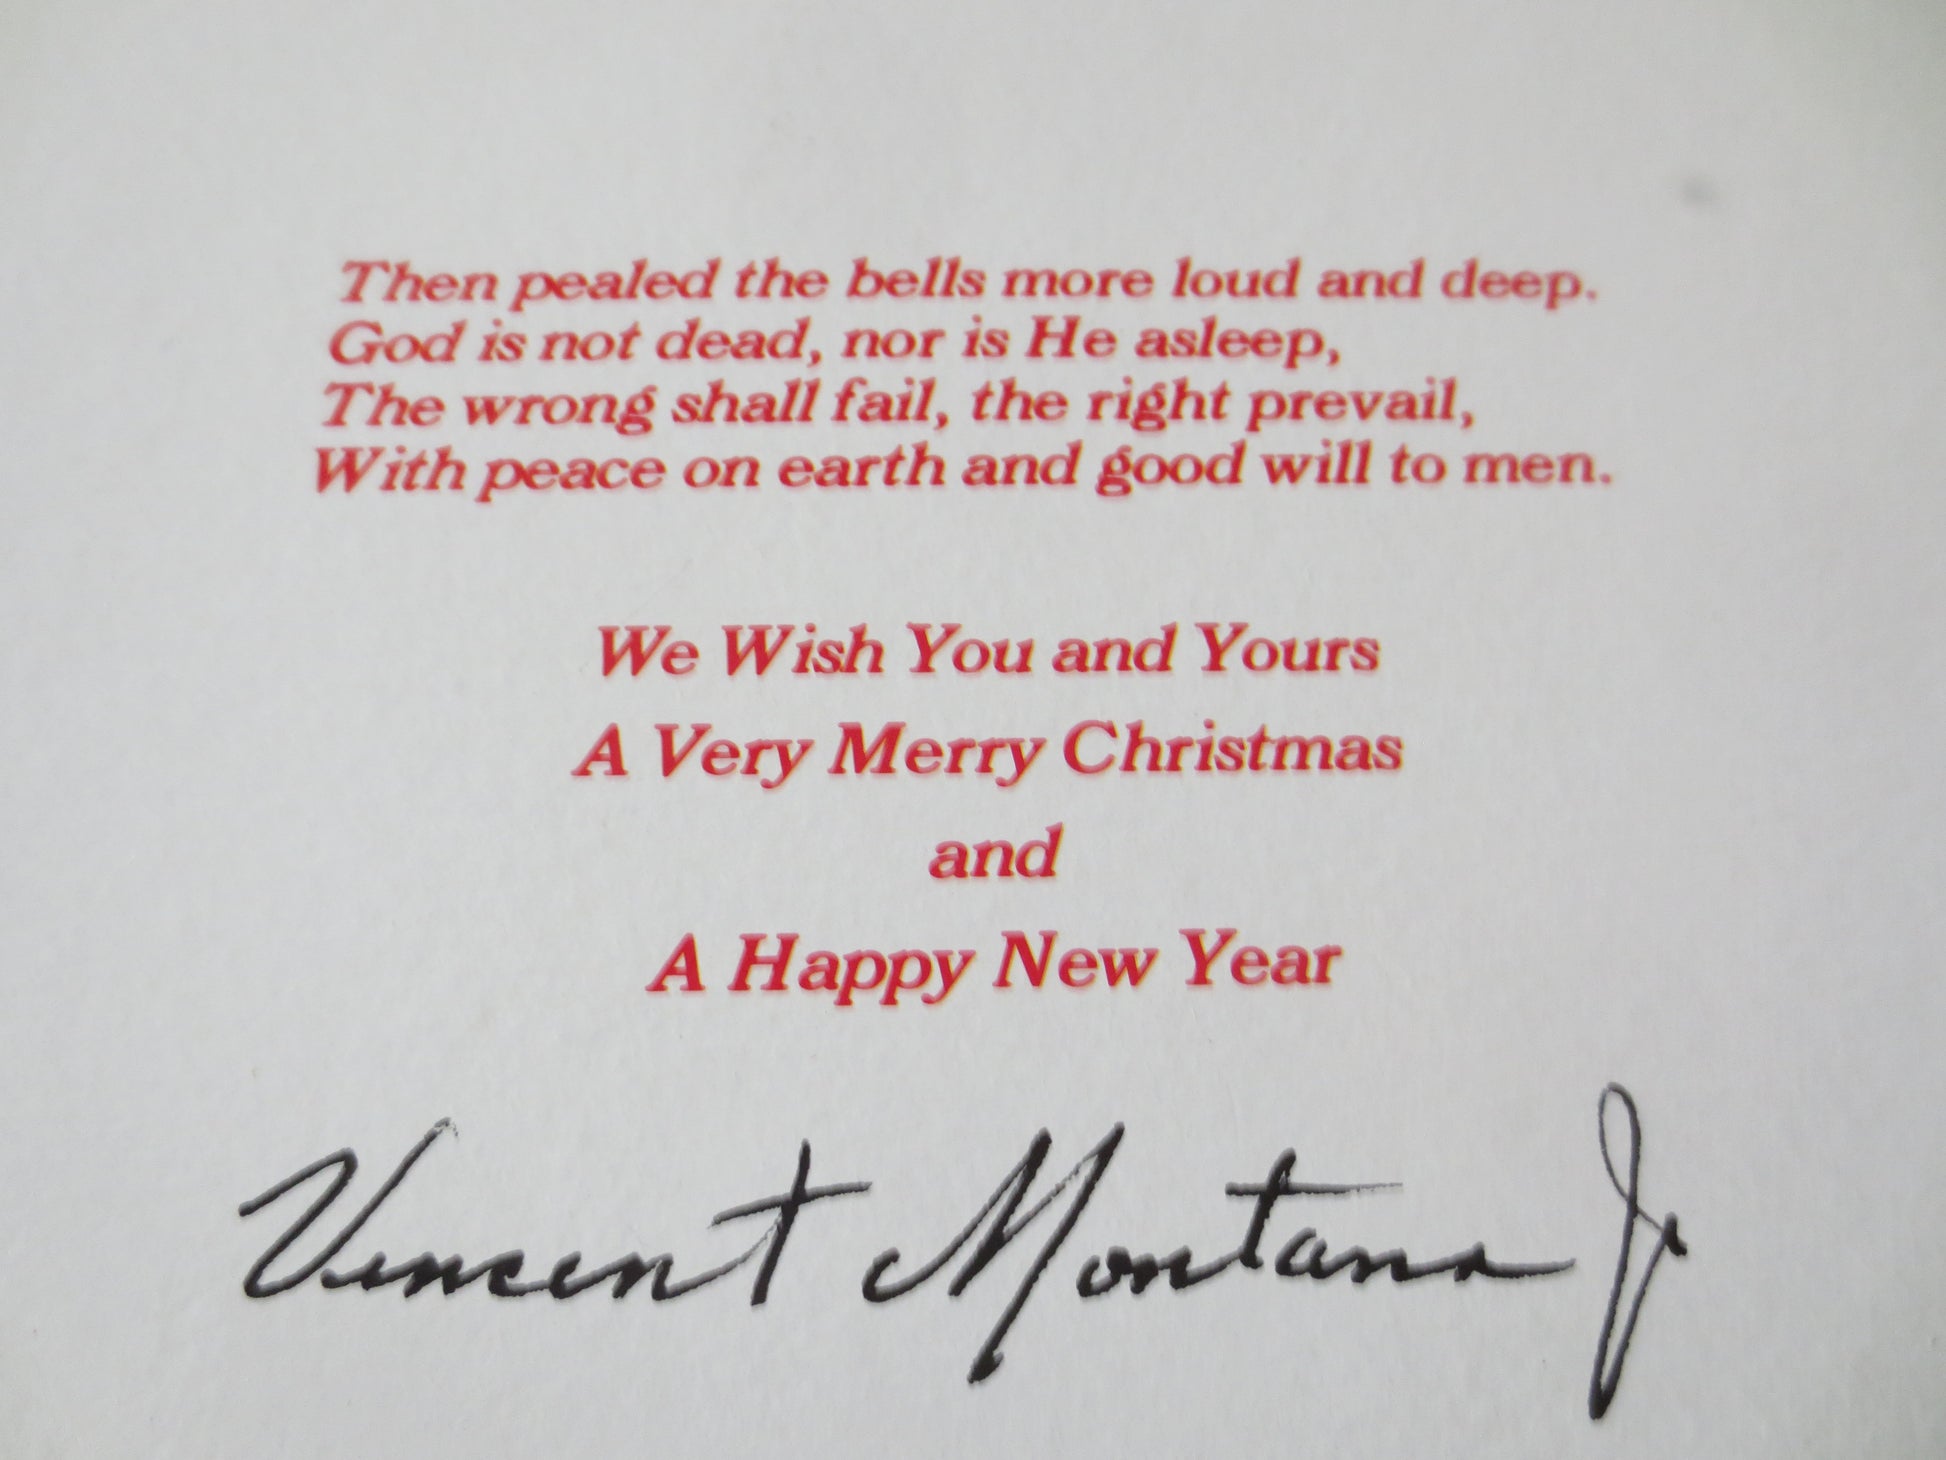 Then pealed the bells more loud and deep.
God is not dead, nor is He asleep,
The wrong shall fail, the right prevail,
With peace on earth and good will to men.
We Wish You and Yours
A Very Merry Christmas
and
A Happy New Year
Vincent Montana Jr